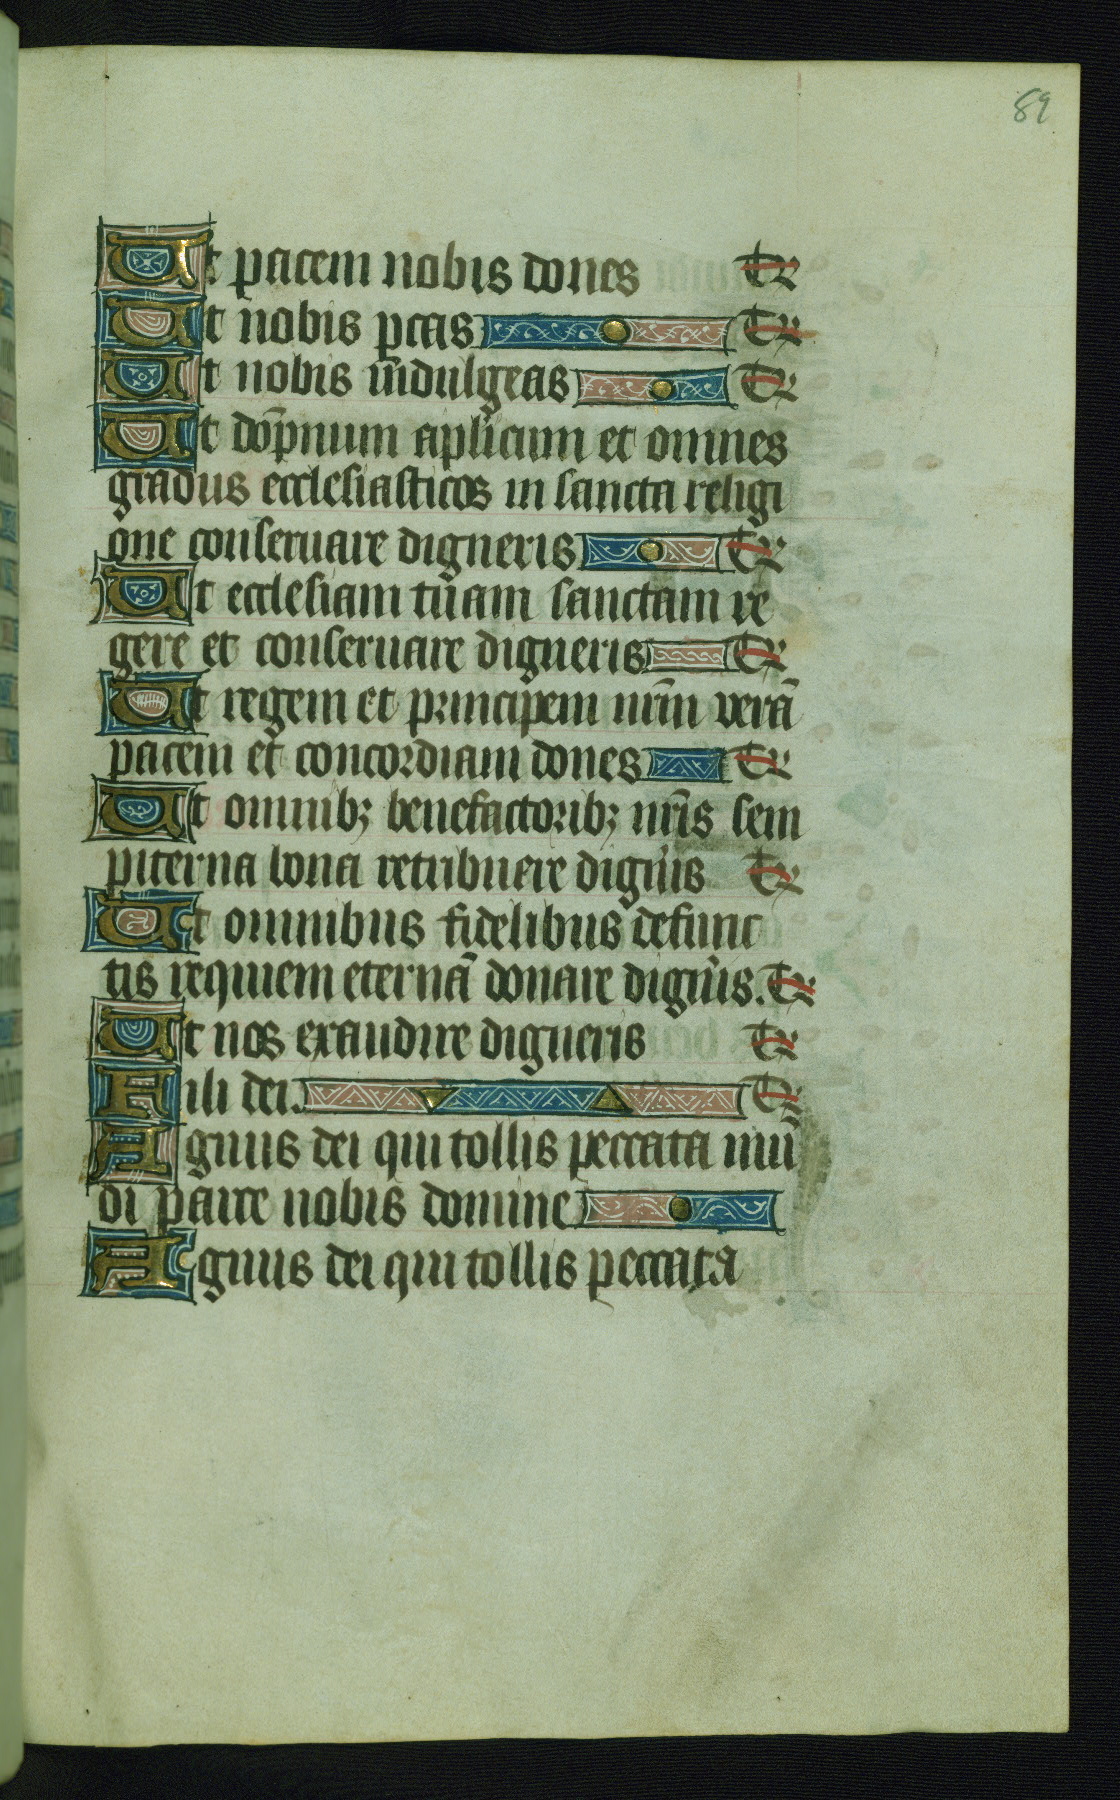 89
Ut pacem nobis dones Te
Ut nobis p̄cas Te
Ut nobis indulgeas Te
Ut dōpnum aplicum et omnes
gradus ecclesiasticos in sancta religi
one conseruare digneris Te
Ut ecclesiam tuam sanctam re
gere et conseruare digneris Te
Ut regem et principem nr̄m verā
pacem et concordiam dones Te
Ut omnibꝫ benefactoribꝫ nr̄is sem
piterna bona retribuere digñis Te
Ut omnibus fidelibus defunc
tis requiem eternā donare digñis. Te
Ut nos exaudire digneris Te
Fili dei. Te
Agnus dei qui tollis peccata mū
di parce nobis domine
Agnus dei qui tollis peccata